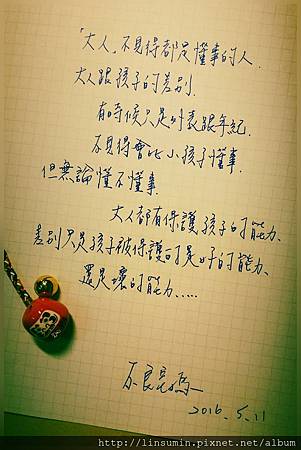 「大人」不見得都是懂事的人.
大人跟孩子的差別.
有時候只是外表跟年紀.
不見得會比小孩子懂事.
但無論懂不懂事.
大人都有保護孩子的能力、
差別只是孩子被保護的是好的能力、
還是壞的能力.....
不良亮媽
2016.5.11
http://linsumin.pixnet.net/album